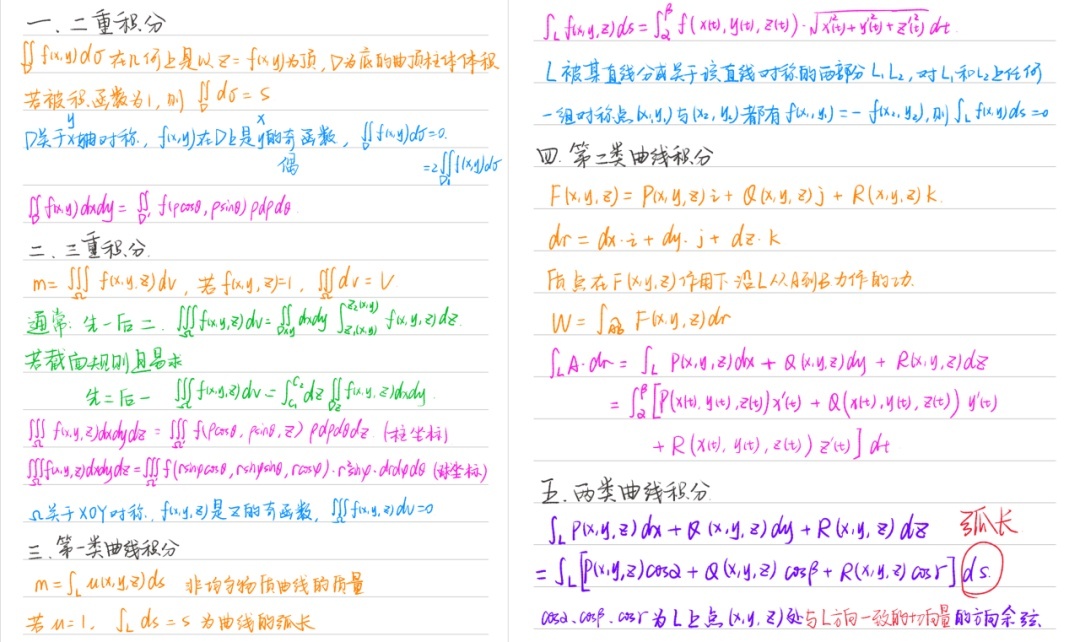 一. 二重积分
∬_D f(x,y)dσ 在几何上是以 z = f(x,y)为顶, D为底的曲顶柱体体积
若被积函数为1, 则 ∬_D dσ = S
y x
D关于x轴对称, f(x,y)在D上是y的奇函数, ∬_D f(x,y)dσ=0.
偶 =2∬_{D₁} f(x,y)dσ
∬_D f(x,y)dxdy = ∬_{D'} f(ρcosθ, ρsinθ) ρdρdθ.
二. 三重积分.
m=∭_Ω f(x,y,z)dv, 若 f(x,y,z)=1, ∭_Ω dv = V
通常: 先一后二. ∭_Ω f(x,y,z)dv=∬_{Dxy} dxdy ∫_{z₁(x,y)}^{z₂(x,y)} f(x,y,z)dz.
若截面规则且易求
先二后一 ∭_Ω f(x,y,z)dv=∫_{c₁}^{c₂} dz ∬_{Dz} f(x,y,z)dxdy.
∭_Ω f(x,y,z)dxdydz = ∭_Ω f(ρcosθ, ρsinθ, z) ρdρdθdz. (柱坐标)
∭_Ω f(x,y,z)dxdydz=∭_Ω f(rsinφcosθ, rsinφsinθ, rcosφ)·r²sinφ·drdφdθ (球坐标)
Ω关于XOY对称, f(x,y,z)是z的奇函数, ∭_Ω f(x,y,z)dv=0
三. 第一类曲线积分
m=∫_L u(x,y,z)ds 非均匀物质曲线的质量
若u=1, ∫_L ds=s 为曲线的弧长
∫_L f(x,y,z)ds=∫_α^β f(x(t), y(t), z(t))·√(x'²(t)+y'²(t)+z'²(t)) dt.
L被某直线分成关于该直线对称的两部分 L₁ L₂, 对L₁和L₂上任何
一组对称点(x₁,y₁)与(x₂,y₂)都有f(x₁,y₁)=-f(x₂,y₂), 则∫_L f(x,y)ds=0
四. 第二类曲线积分
F(x,y,z) = P(x,y,z)i + Q(x,y,z)j + R(x,y,z)k.
dr = dx·i + dy·j + dz·k
质点在F(x,y,z)作用下沿L从A到B力作的功.
W = ∫_{AB} F(x,y,z)dr
∫_L A·dr = ∫_L P(x,y,z)dx + Q(x,y,z)dy + R(x,y,z)dz
= ∫_α^β [P(x(t), y(t), z(t))x'(t) + Q(x(t), y(t), z(t)) y'(t)
+ R(x(t), y(t), z(t)) z'(t)] dt
五. 两类曲线积分
∫_L P(x,y,z)dx + Q(x,y,z)dy + R(x,y,z)dz 弧长
= ∫_L [P(x,y,z)cosα + Q(x,y,z)cosβ + R(x,y,z)cosr] ds.
cosα. cosβ. cosr 为L上点(x,y,z)处与L方向一致的切向量的方向余弦.